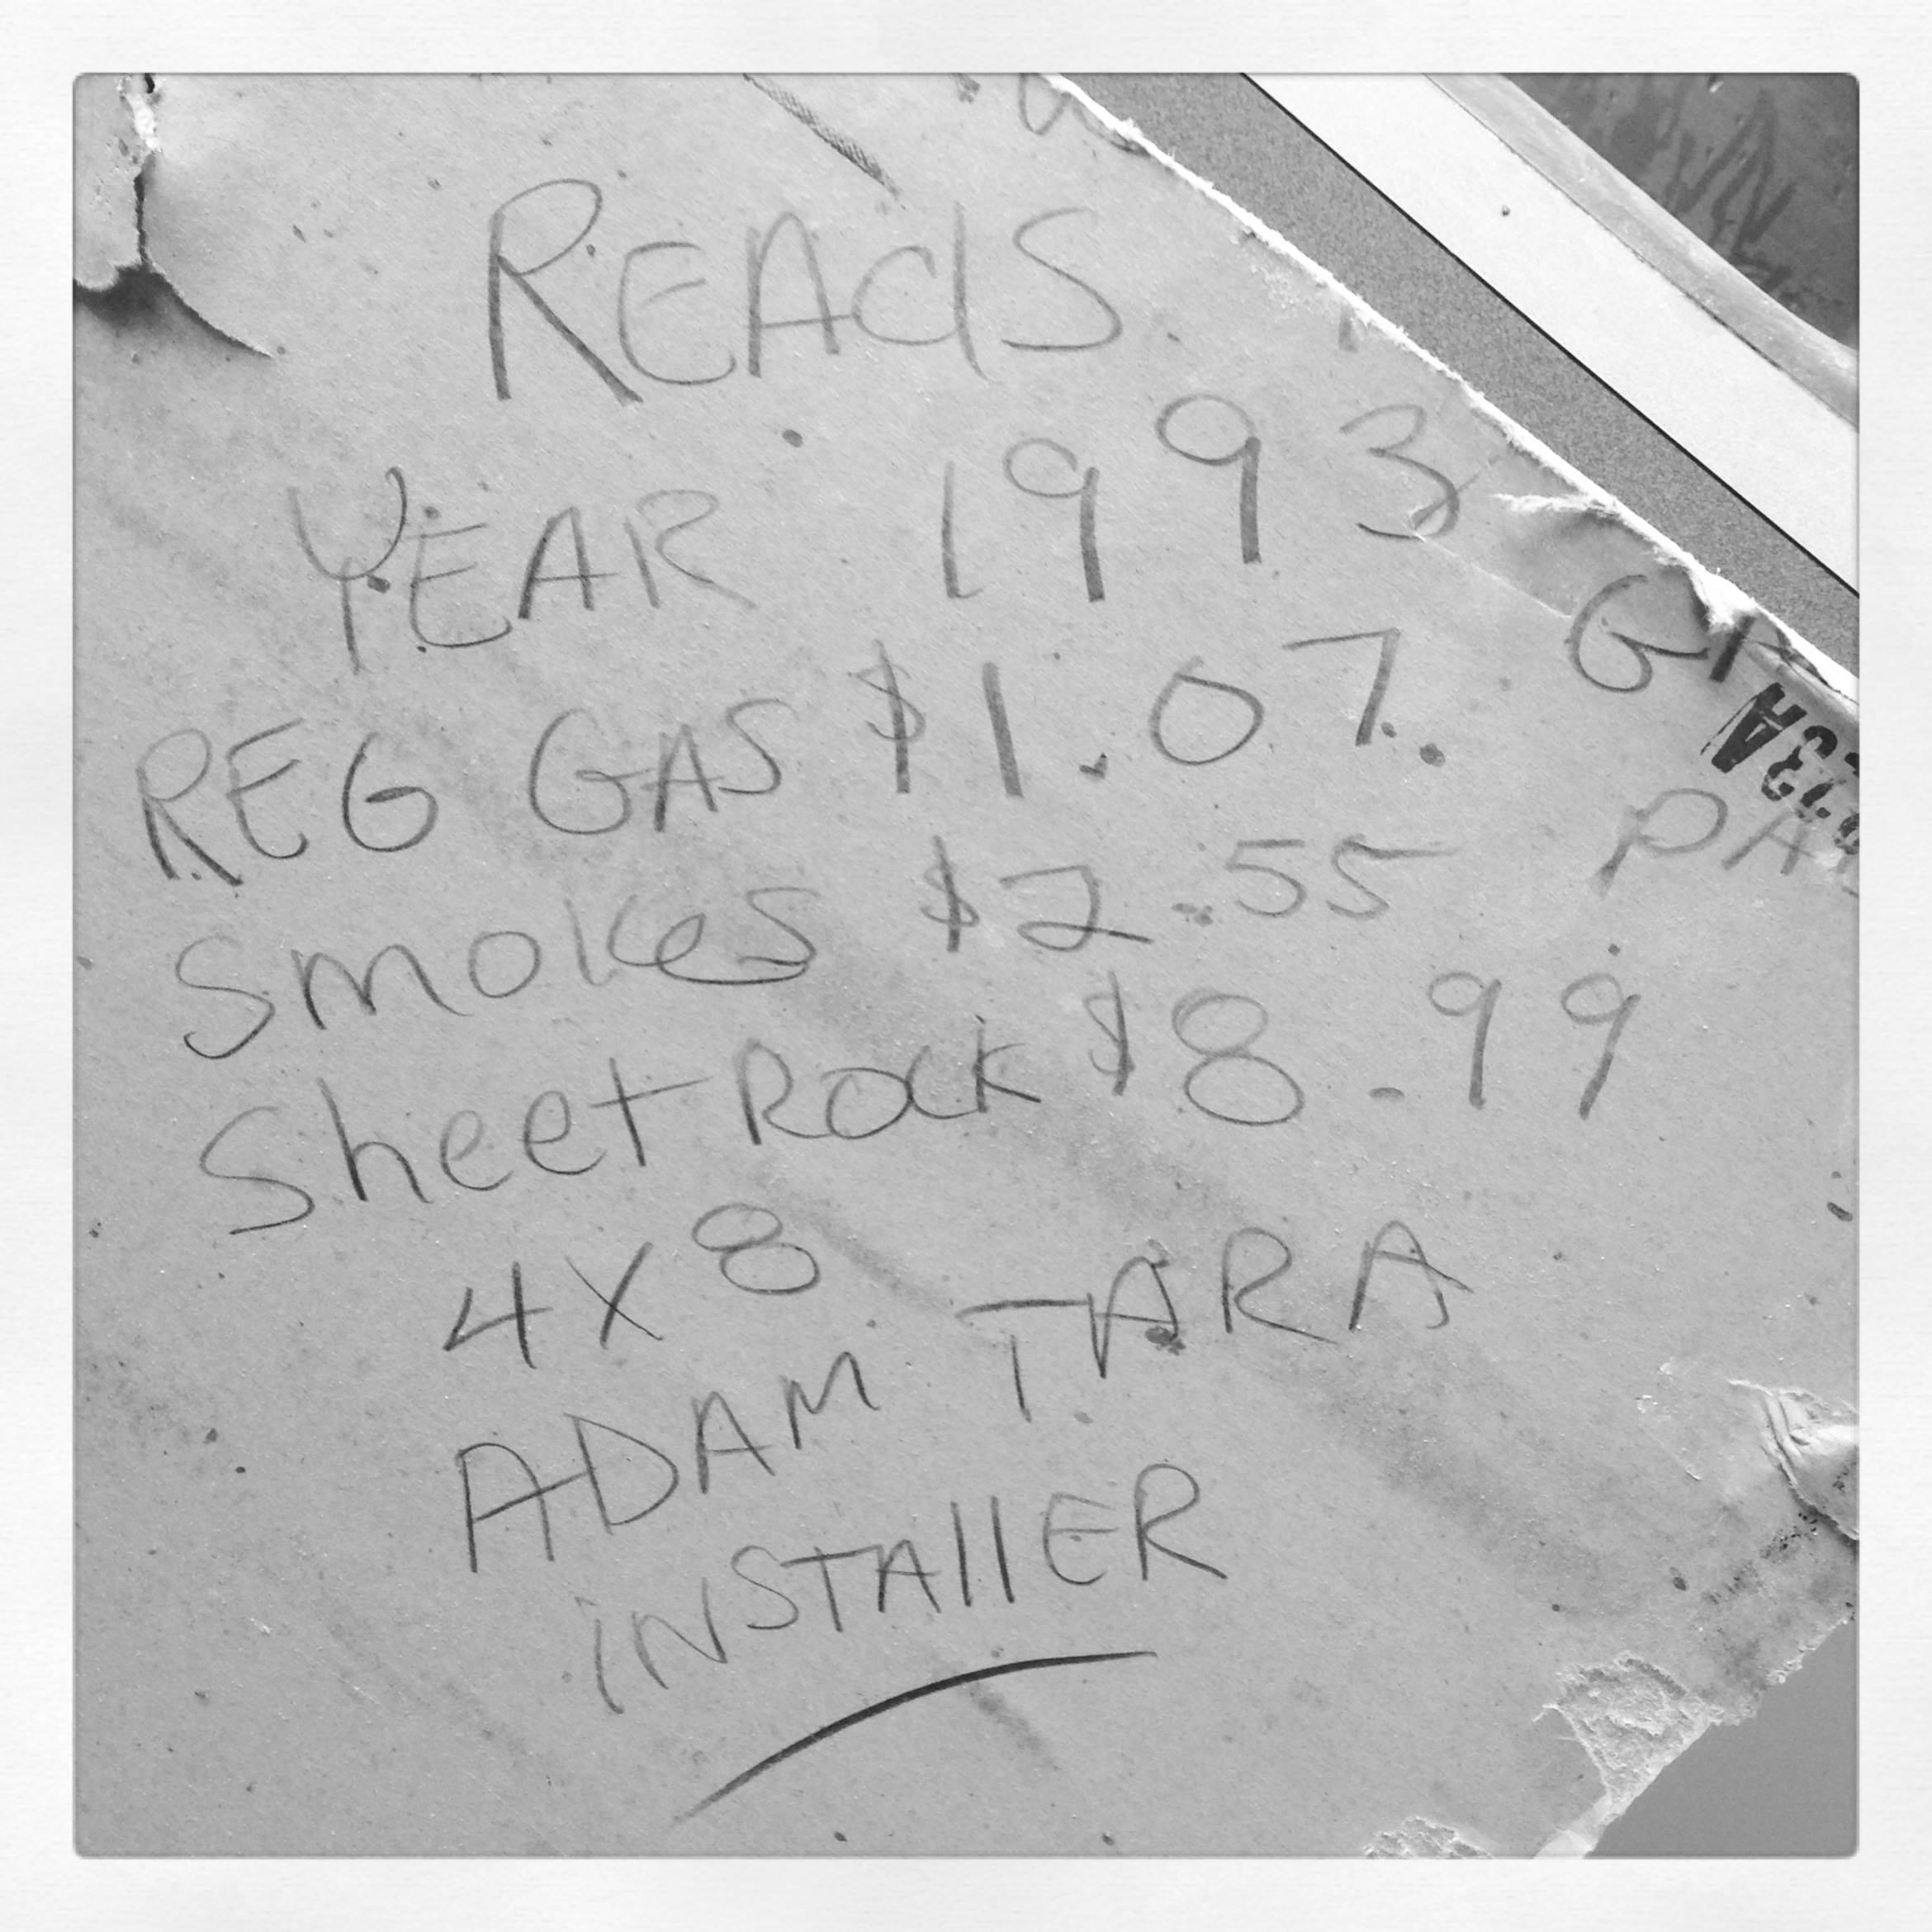 REAdS
YEAR 1993
REG GAS $1.07. GA
SmoKes $2.55 PA
Sheet Rock $8.99
4x8
ADAM TARA
iNSTAllER